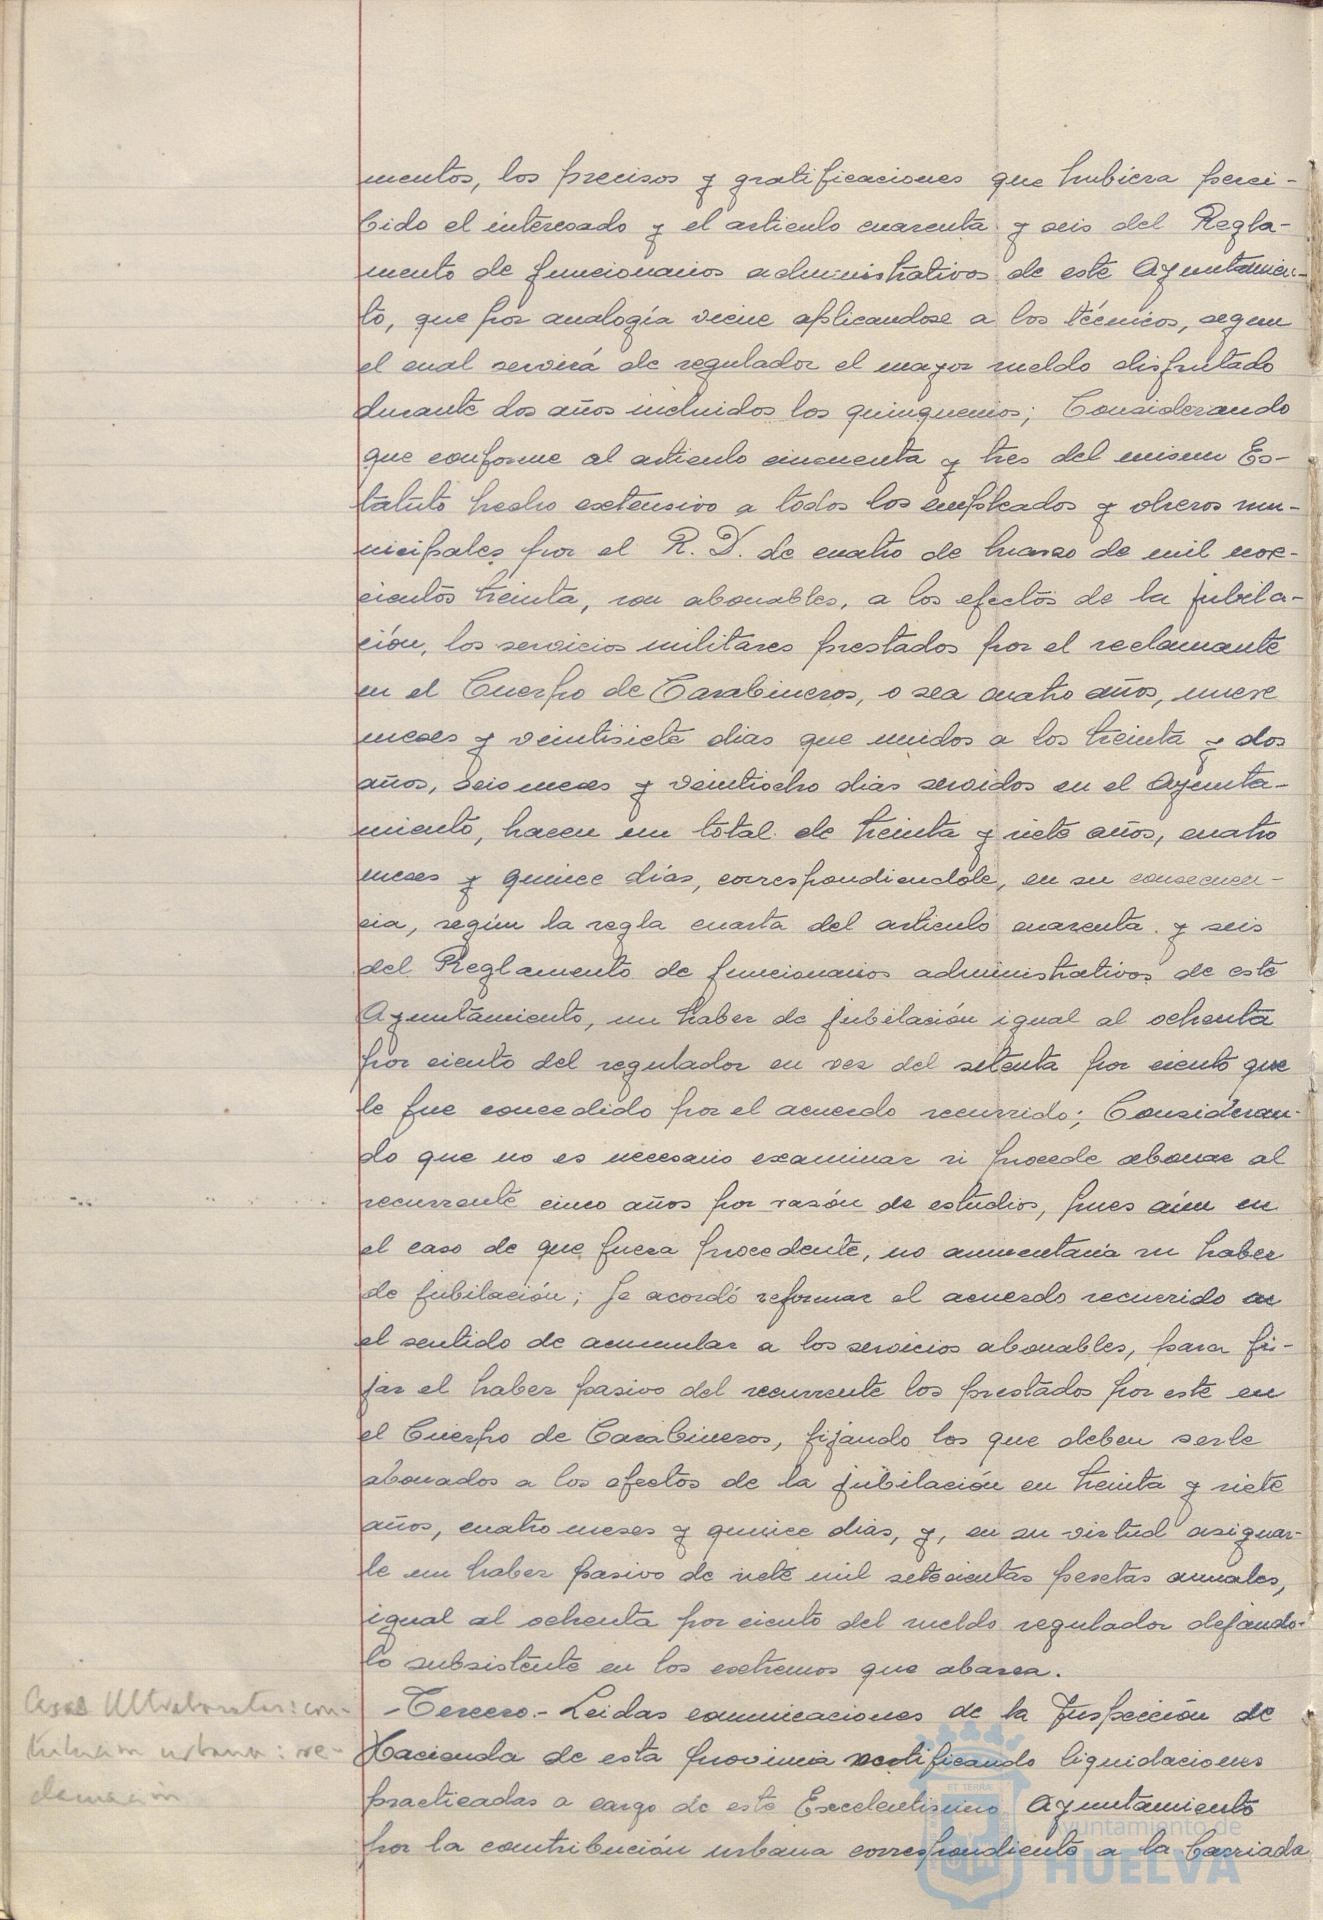 mentos, los precisos y gratificaciones que hubiera perci-
bido el interesado y el articulo cuarenta y seis del Regla-
mento de funcionarios administrativos de este Ayuntamien-
to, que por analogía viene aplicandose a los técnicos, segun
el cual servirá de regulador el mayor sueldo disfrutado
durante dos años incluidos los quinquenios; Considerando
que conforme al articulo cincuenta y tres del mismo Es-
tatuto hecho extensivo a todos los empleados y obreros mu-
nicipales por el R. D. de cuatro de marzo de mil nove-
cientos treinta, son abonables, a los efectos de la jubila-
ción, los servicios militares prestados por el reclamante
en el Cuerpo de Carabineros, o sea cuatro años, nueve
meses y veintisiete dias que unidos a los treinta y dos
años, seis meses y veintiocho dias servidos en el Ayunta-
miento, hacen un total de treinta y siete años, cuatro
meses y quince dias, correspondiendole, en su consecuen-
cia, según la regla cuarta del articulo cuarenta y seis
del Reglamento de funcionarios administrativos de este
Ayuntamiento, un haber de jubilación igual al ochenta
por ciento del regulador en vez del setenta por ciento que
le fue concedido por el acuerdo recurrido; Consideran-
do que no es necesario examinar si procede abonar al
recurrente cinco años por razón de estudios, pues aún en
el caso de que fuera procedente, no aumentaria su haber
de jubilación; Se acordó reformar el acuerdo recurrido en
el sentido de acumular a los servicios abonables, para fi-
jar el haber pasivo del recurrente los prestados por este en
el Cuerpo de Carabineros, fijando los que deben serle
abonados a los efectos de la jubilación en treinta y siete
años, cuatro meses y quince dias, y, en su virtud asignar-
le un haber pasivo de siete mil setecientas pesetas anuales,
igual al ochenta por ciento del sueldo regulador dejando-
lo subsistente en los extremos que abarca.
Casas Ultrabaratas: con-
tribucion urbana: re-
clamación
-Tercero.- Leidas comunicaciones de la Inspección de
Hacienda de esta provincia rectificando liquidaciones
practicadas a cargo de este Excelentisimo Ayuntamiento
por la contribución urbana correspondiente a la barriada
ET TERRÆ
Ayuntamiento de
HUELVA